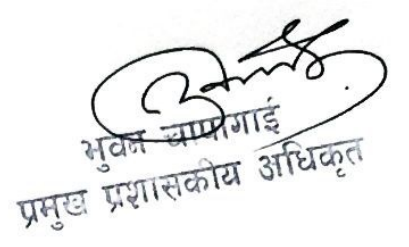 भुवन चापागाई
प्रमुख प्रशासकीय अधिकृत